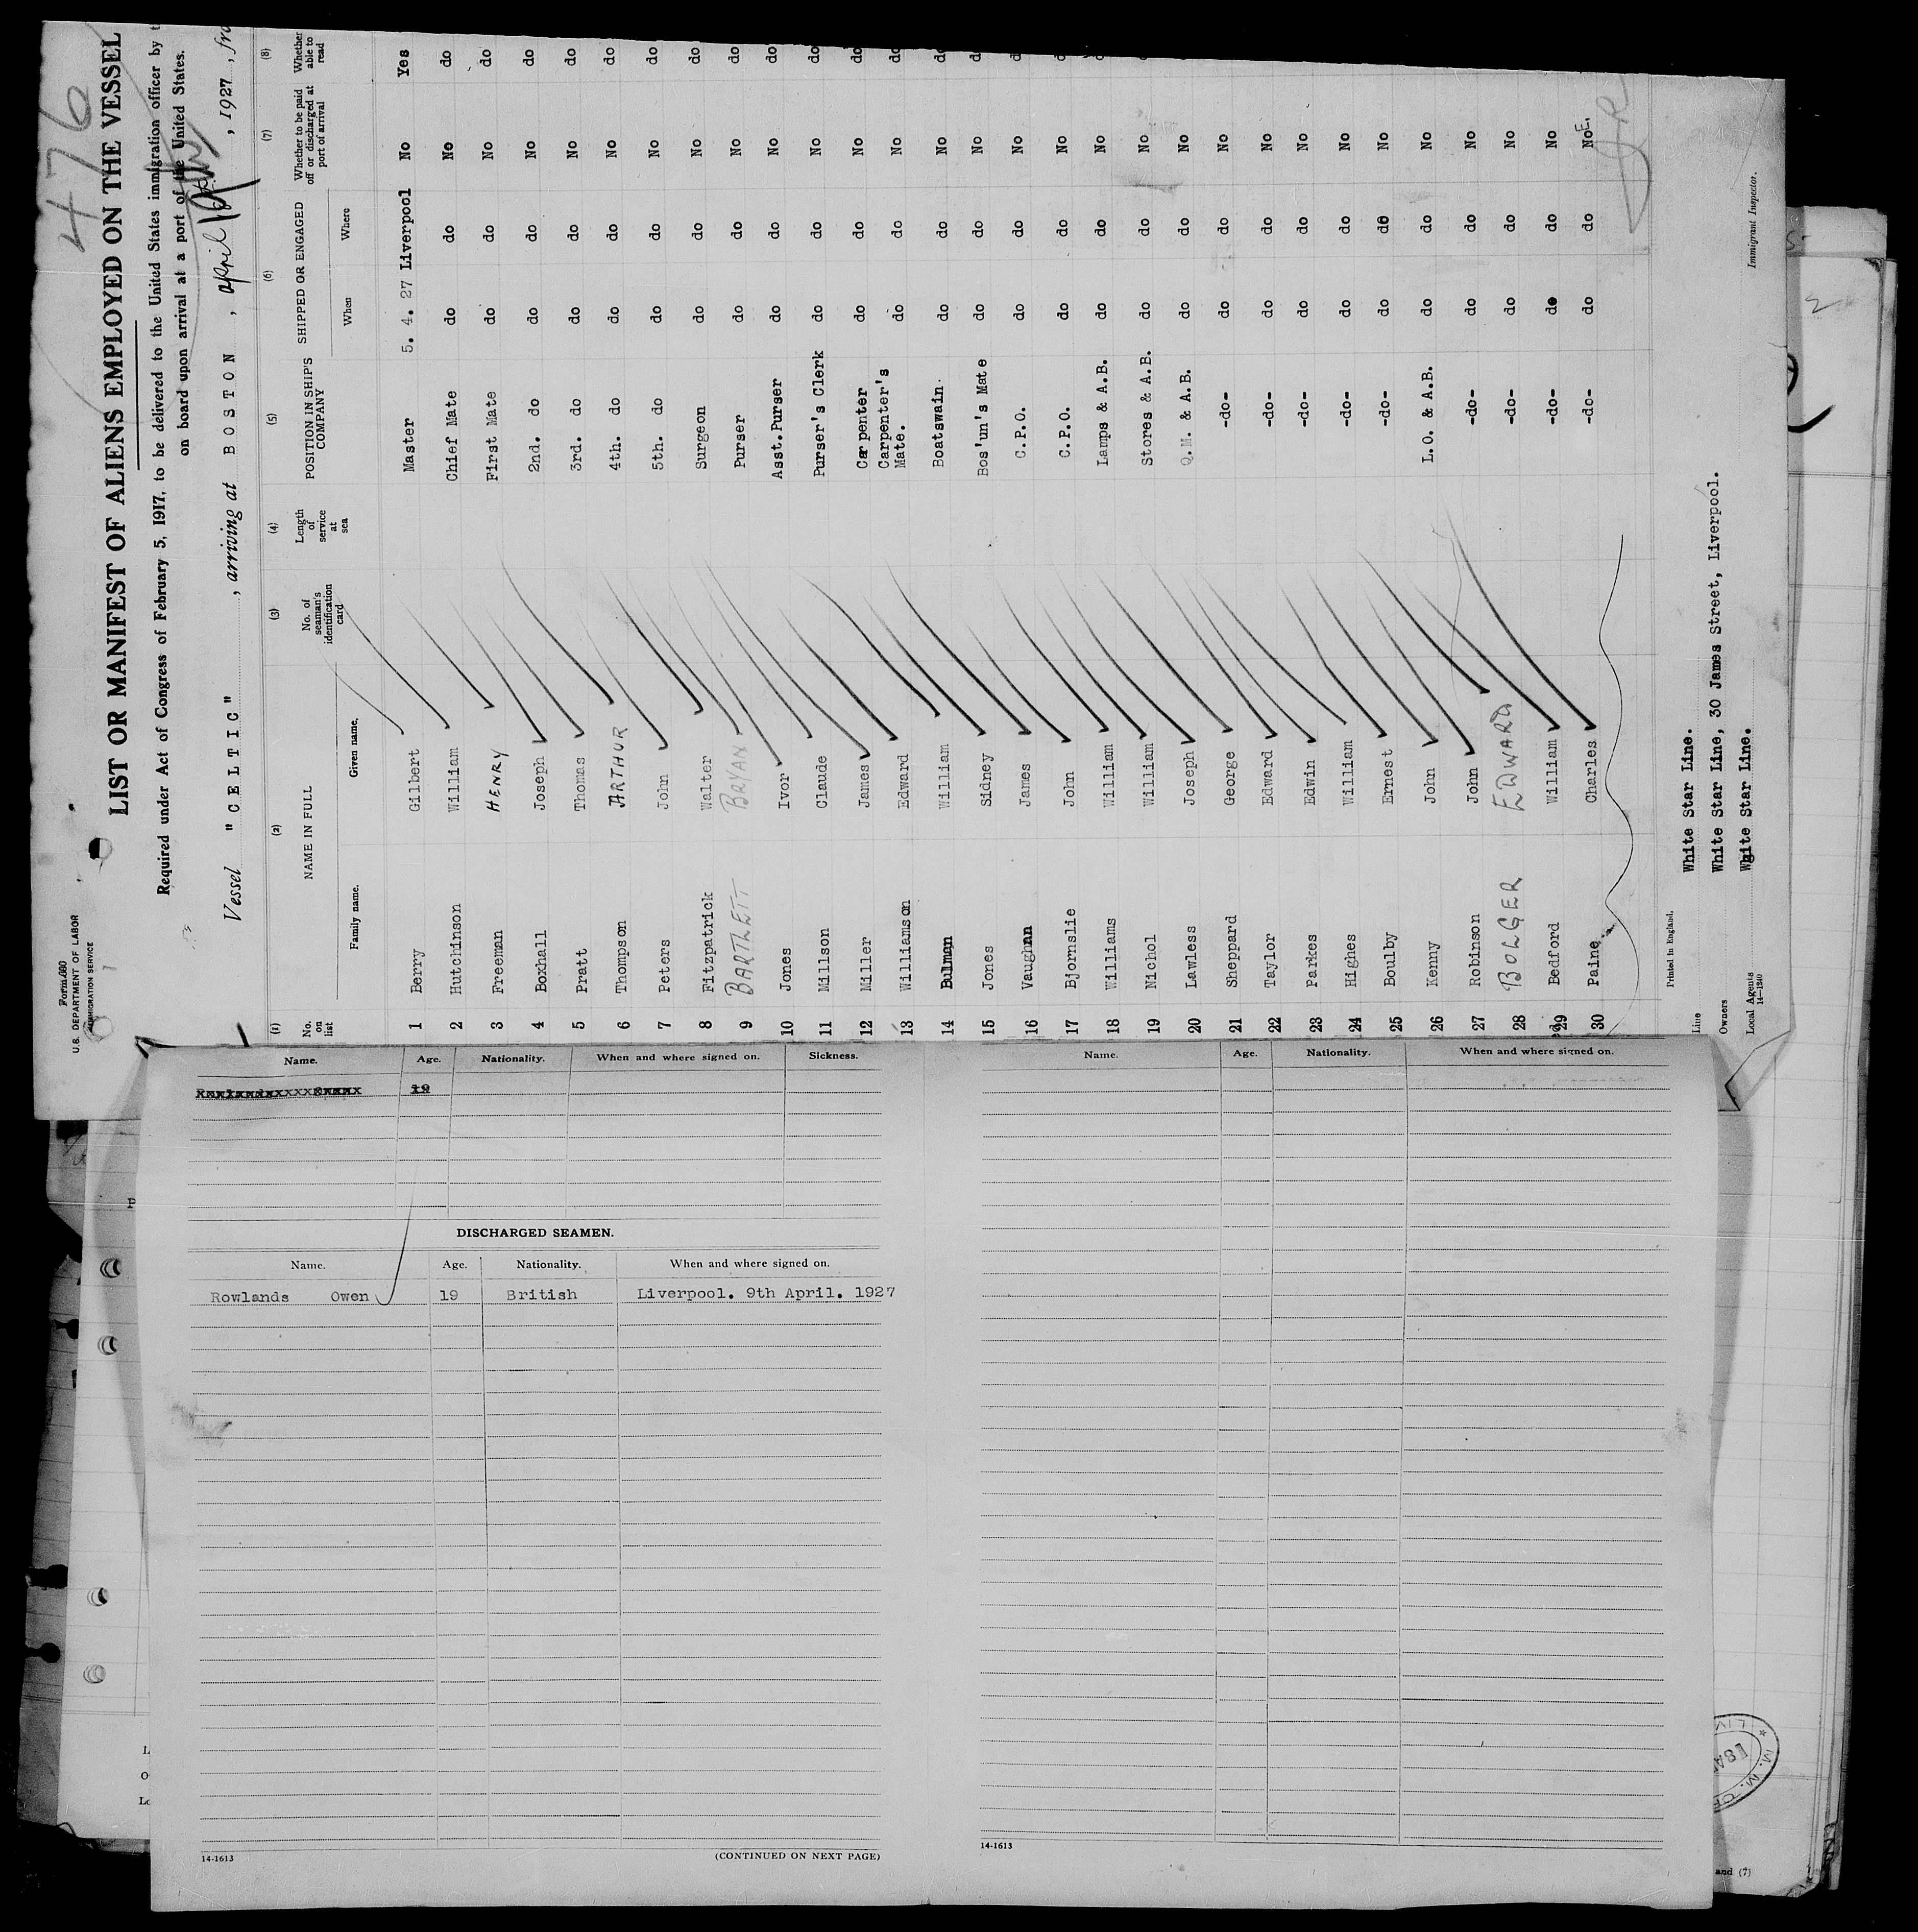 476
Form 680
U.S. DEPARTMENT OF LABOR
IMMIGRATION SERVICE
LIST OR MANIFEST OF ALIENS EMPLOYED ON THE VESSEL
Required under Act of Congress of February 5, 1917, to be delivered to the United States immigration officer by
on board upon arrival at a port of the United States.
Vessel "CELTIC", arriving at BOSTON, april, 1927, fro
(1) (2) (3) (4) (5) (6) (7) (8)
No. on list NAME IN FULL No. of seaman's identification card Length of service at sea POSITION IN SHIP'S COMPANY SHIPPED OR ENGAGED Whether to be paid off or discharged at port of arrival Whether able to read
Family name. Given name. When Where
1 Berry Gilbert Master 5. 4. 27 Liverpool No Yes
2 Hutchinson William Chief Mate do do No do
3 Freeman HENRY First Mate do do No do
4 Boxhall Joseph 2nd. do do do No do
5 Pratt Thomas 3rd. do do do No do
6 Thompson ARTHUR 4th. do do do No do
7 Peters John 5th. do do do No do
8 Fitzpatrick Walter Surgeon do do No do
9 BARTLETT BRYAN Purser do do No do
10 Jones Ivor Asst.Purser do do No do
11 Millson Claude Purser's Clerk do do No do
12 Miller James Carpenter do do No do
13 Williamson Edward Carpenter's Mate. do do No do
14 Bulman William Boatswain. do do No do
15 Jones Sidney Bos'un's Mate do do No do
16 Vaughan James C.P.O. do do No do
17 Bjornslie John C.P.O. do do No d
18 Williams William Lamps & A.B. do do No
19 Nichol William Stores & A.B. do do No
20 Lawless Joseph Q.M. & A.B. do do No
21 Sheppard George -do- do do No
22 Taylor Edward -do- do do No
23 Parkes Edwin -do- do do No
24 Highes William -do- do do No
25 Boulby Ernest -do- do do No
26 Kenny John L.O. & A.B. do do No
27 Robinson John -do- do do No
28 BOLGER EDWARD -do- do do No
29 Bedford William -do- do do No
30 Paine Charles -do- do do No E.
Printed in England.
Line White Star Line.
Owners White Star Line, 30 James Street, Liverpool.
Local Agents White Star Line.
14-1240
Immigrant Inspector.
Name. Age. Nationality. When and where signed on. Sickness.
19
DISCHARGED SEAMEN.
Name. Age. Nationality. When and where signed on.
Rowlands Owen 19 British Liverpool. 9th April. 1927
14-1613
(CONTINUED ON NEXT PAGE)
Name. Age. Nationality. When and where signed on.
14-1613
and (7)